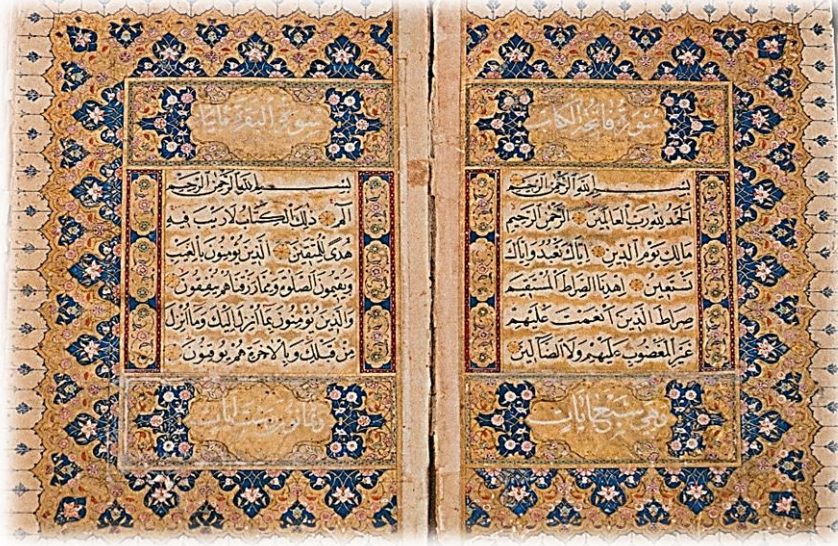 سورة فاتحة الكتاب
بسم الله الرحمن الرحيم
الحمد لله رب العالمين الرحمن الرحيم
مالك يوم الدين اياك نعبد واياك
نستعين اهدنا الصراط المستقيم
صراط الذين انعمت عليهم
غير المغضوب عليهم ولا الضالين
وهي سبع ايات
سورة البقرة
بسم الله الرحمن الرحيم
الم ذلك الكتاب لا ريب فيه
هدى للمتقين الذين يؤمنون بالغيب
ويقيمون الصلوة ومما رزقناهم ينفقون
والذين يؤمنون بما انزل اليك وما انزل
من قبلك وبالاخرة هم يوقنون